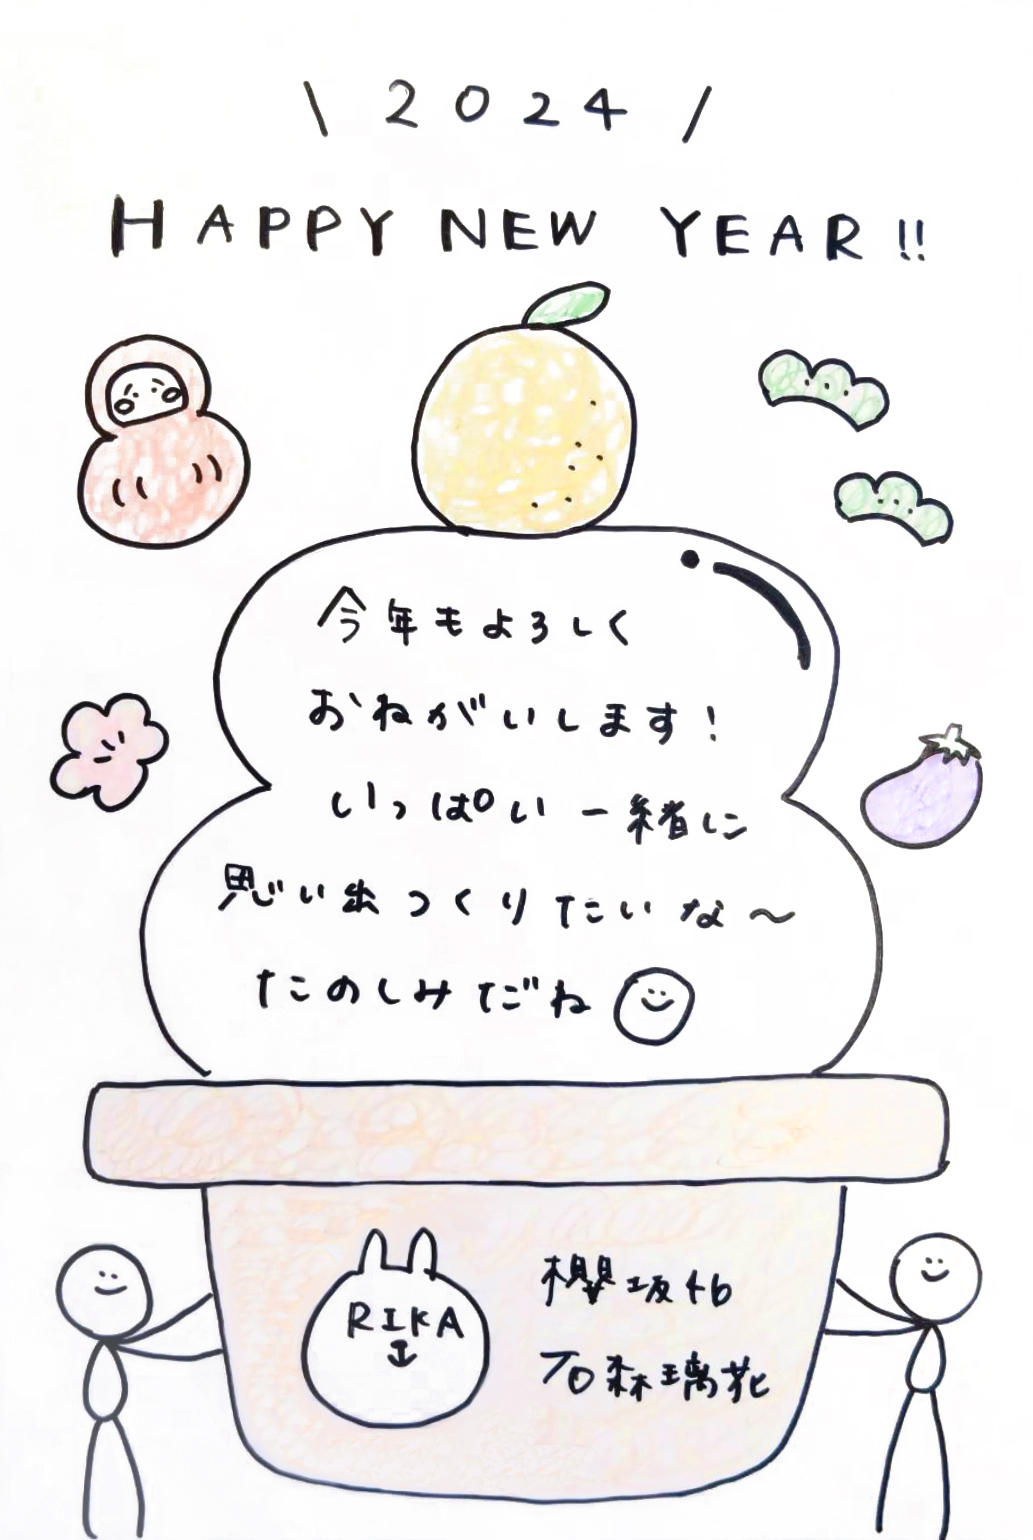 \ 2024 /
HAPPY NEW YEAR!!
今年もよろしく
おねがいします!
いっぱい一緒に
思い出つくりたいな〜
たのしみだね
RIKA
櫻坂46
石森璃花